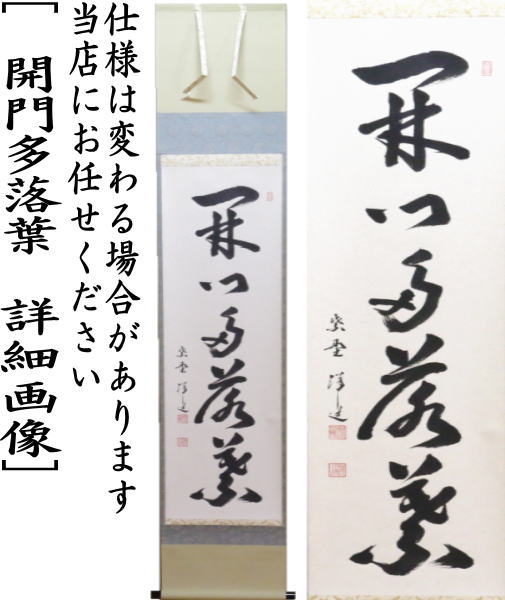 仕様は変わる場合があります
当店にお任せください
[ 開門多落葉 詳細画像 ]
開門多落葉
開門多落葉